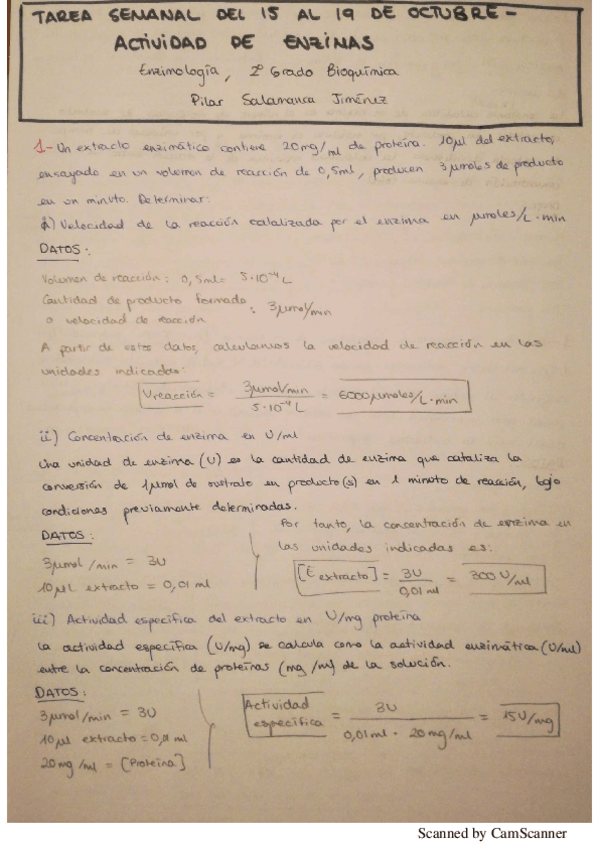 TAREA SEMANAL DEL 15 AL 19 DE OCTUBRE -
ACTIVIDAD DE ENZIMAS
Enzimología, 2º Grado Bioquímica
Pilar Salamanca Jiménez
1- Un extracto enzimático contiene 20mg/ml de proteína. 10µl del extracto,
ensayado en un volumen de reacción de 0,5ml, producen 3 µmoles de producto
en un minuto. Determinar:
i) Velocidad de la reacción catalizada por el enzima en µmoles/L·min
DATOS:
Volumen de reacción: 0,5ml = 5·10⁻⁴ L
Cantidad de producto formado
o velocidad de reacción : 3µmol/min
A partir de estos datos, calculamos la velocidad de reacción en las
unidades indicadas:
Vreacción = 3µmol/min / 5·10⁻⁴ L = 6000µmoles/L·min
ii) Concentración de enzima en U/ml
Una unidad de enzima (U) es la cantidad de enzima que cataliza la
conversión de 1µmol de sustrato en producto(s) en 1 minuto de reacción, bajo
condiciones previamente determinadas.
DATOS:
3µmol/min = 3U
10µL extracto = 0,01 ml
Por tanto, la concentración de enzima en
las unidades indicadas es:
[E extracto] = 3U / 0,01 ml = 300 U/ml
iii) Actividad específica del extracto en U/mg proteína
La actividad específica (U/mg) se calcula como la actividad enzimática (U/ml)
entre la concentración de proteínas (mg/ml) de la solución.
DATOS:
3µmol/min = 3U
10µl extracto = 0,01 ml
20mg/ml = [Proteína]
Actividad específica = 3U / 0,01ml · 20mg/ml = 15U/mg
Scanned by CamScanner